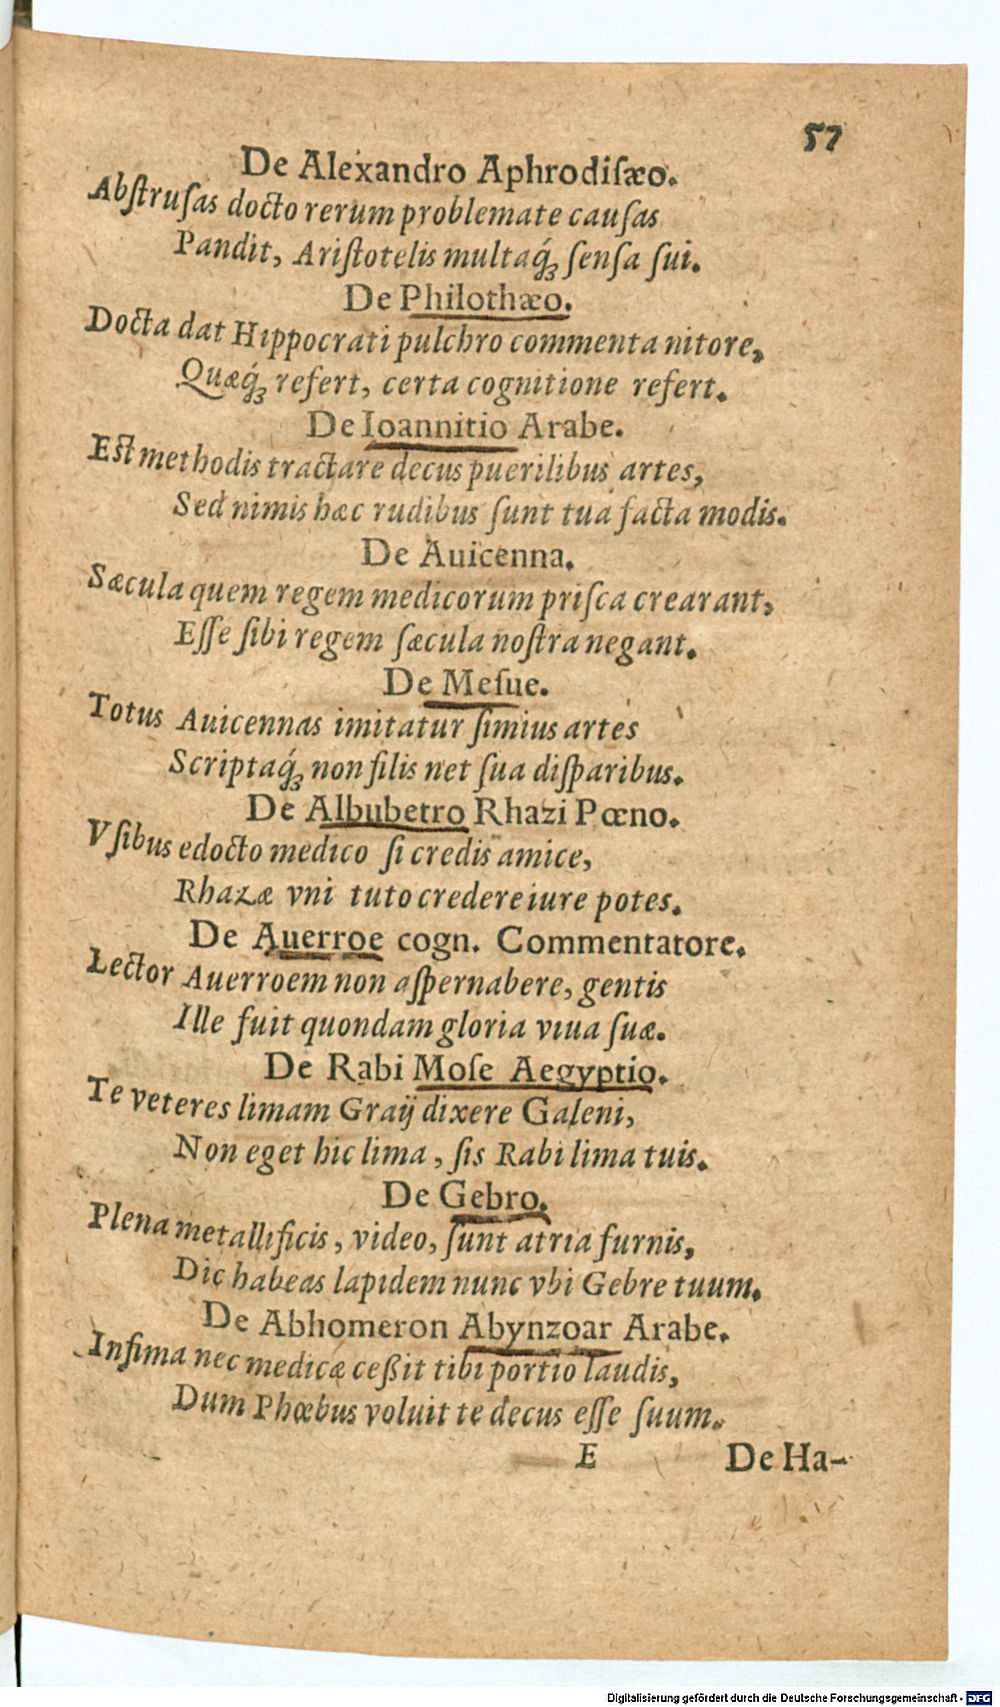 57
De Alexandro Aphrodiſæo.
Abſtruſas docto rerum problemate cauſas
Pandit, Ariſtotelis multaq́; ſenſa ſui.
De Philothæo.
Docta dat Hippocrati pulchro commenta nitore,
Quæq́; refert, certa cognitione refert.
De Ioannitio Arabe.
Eſt methodis tractare decus puerilibus artes,
Sed nimis hæc rudibus ſunt tua facta modis.
De Auicenna.
Sæcula quem regem medicorum priſca crearant,
Eſſe ſibi regem ſæcula noſtra negant.
De Meſue.
Totus Auicennas imitatur ſimius artes
Scriptaq́; non filis net ſua diſparibus.
De Albubetro Rhazi Pœno.
Vſibus edocto medico ſi credis amice,
Rhazæ vni tuto credere iure potes.
De Auerroe cogn. Commentatore.
Lector Auerroem non aſpernabere, gentis
Ille fuit quondam gloria viua ſuæ.
De Rabi Moſe Aegyptio.
Te veteres limam Graij dixere Galeni,
Non eget hic lima, ſis Rabi lima tuis.
De Gebro.
Plena metallificis, video, ſunt atria furnis,
Dic habeas lapidem nunc vbi Gebre tuum.
De Abhomeron Abynzoar Arabe.
Infima nec medicæ ceßit tibi portio laudis,
Dum Phœbus voluit te decus eſſe ſuum.
E De Ha-
Digitalisierung gefördert durch die Deutsche Forschungsgemeinschaft - DFG